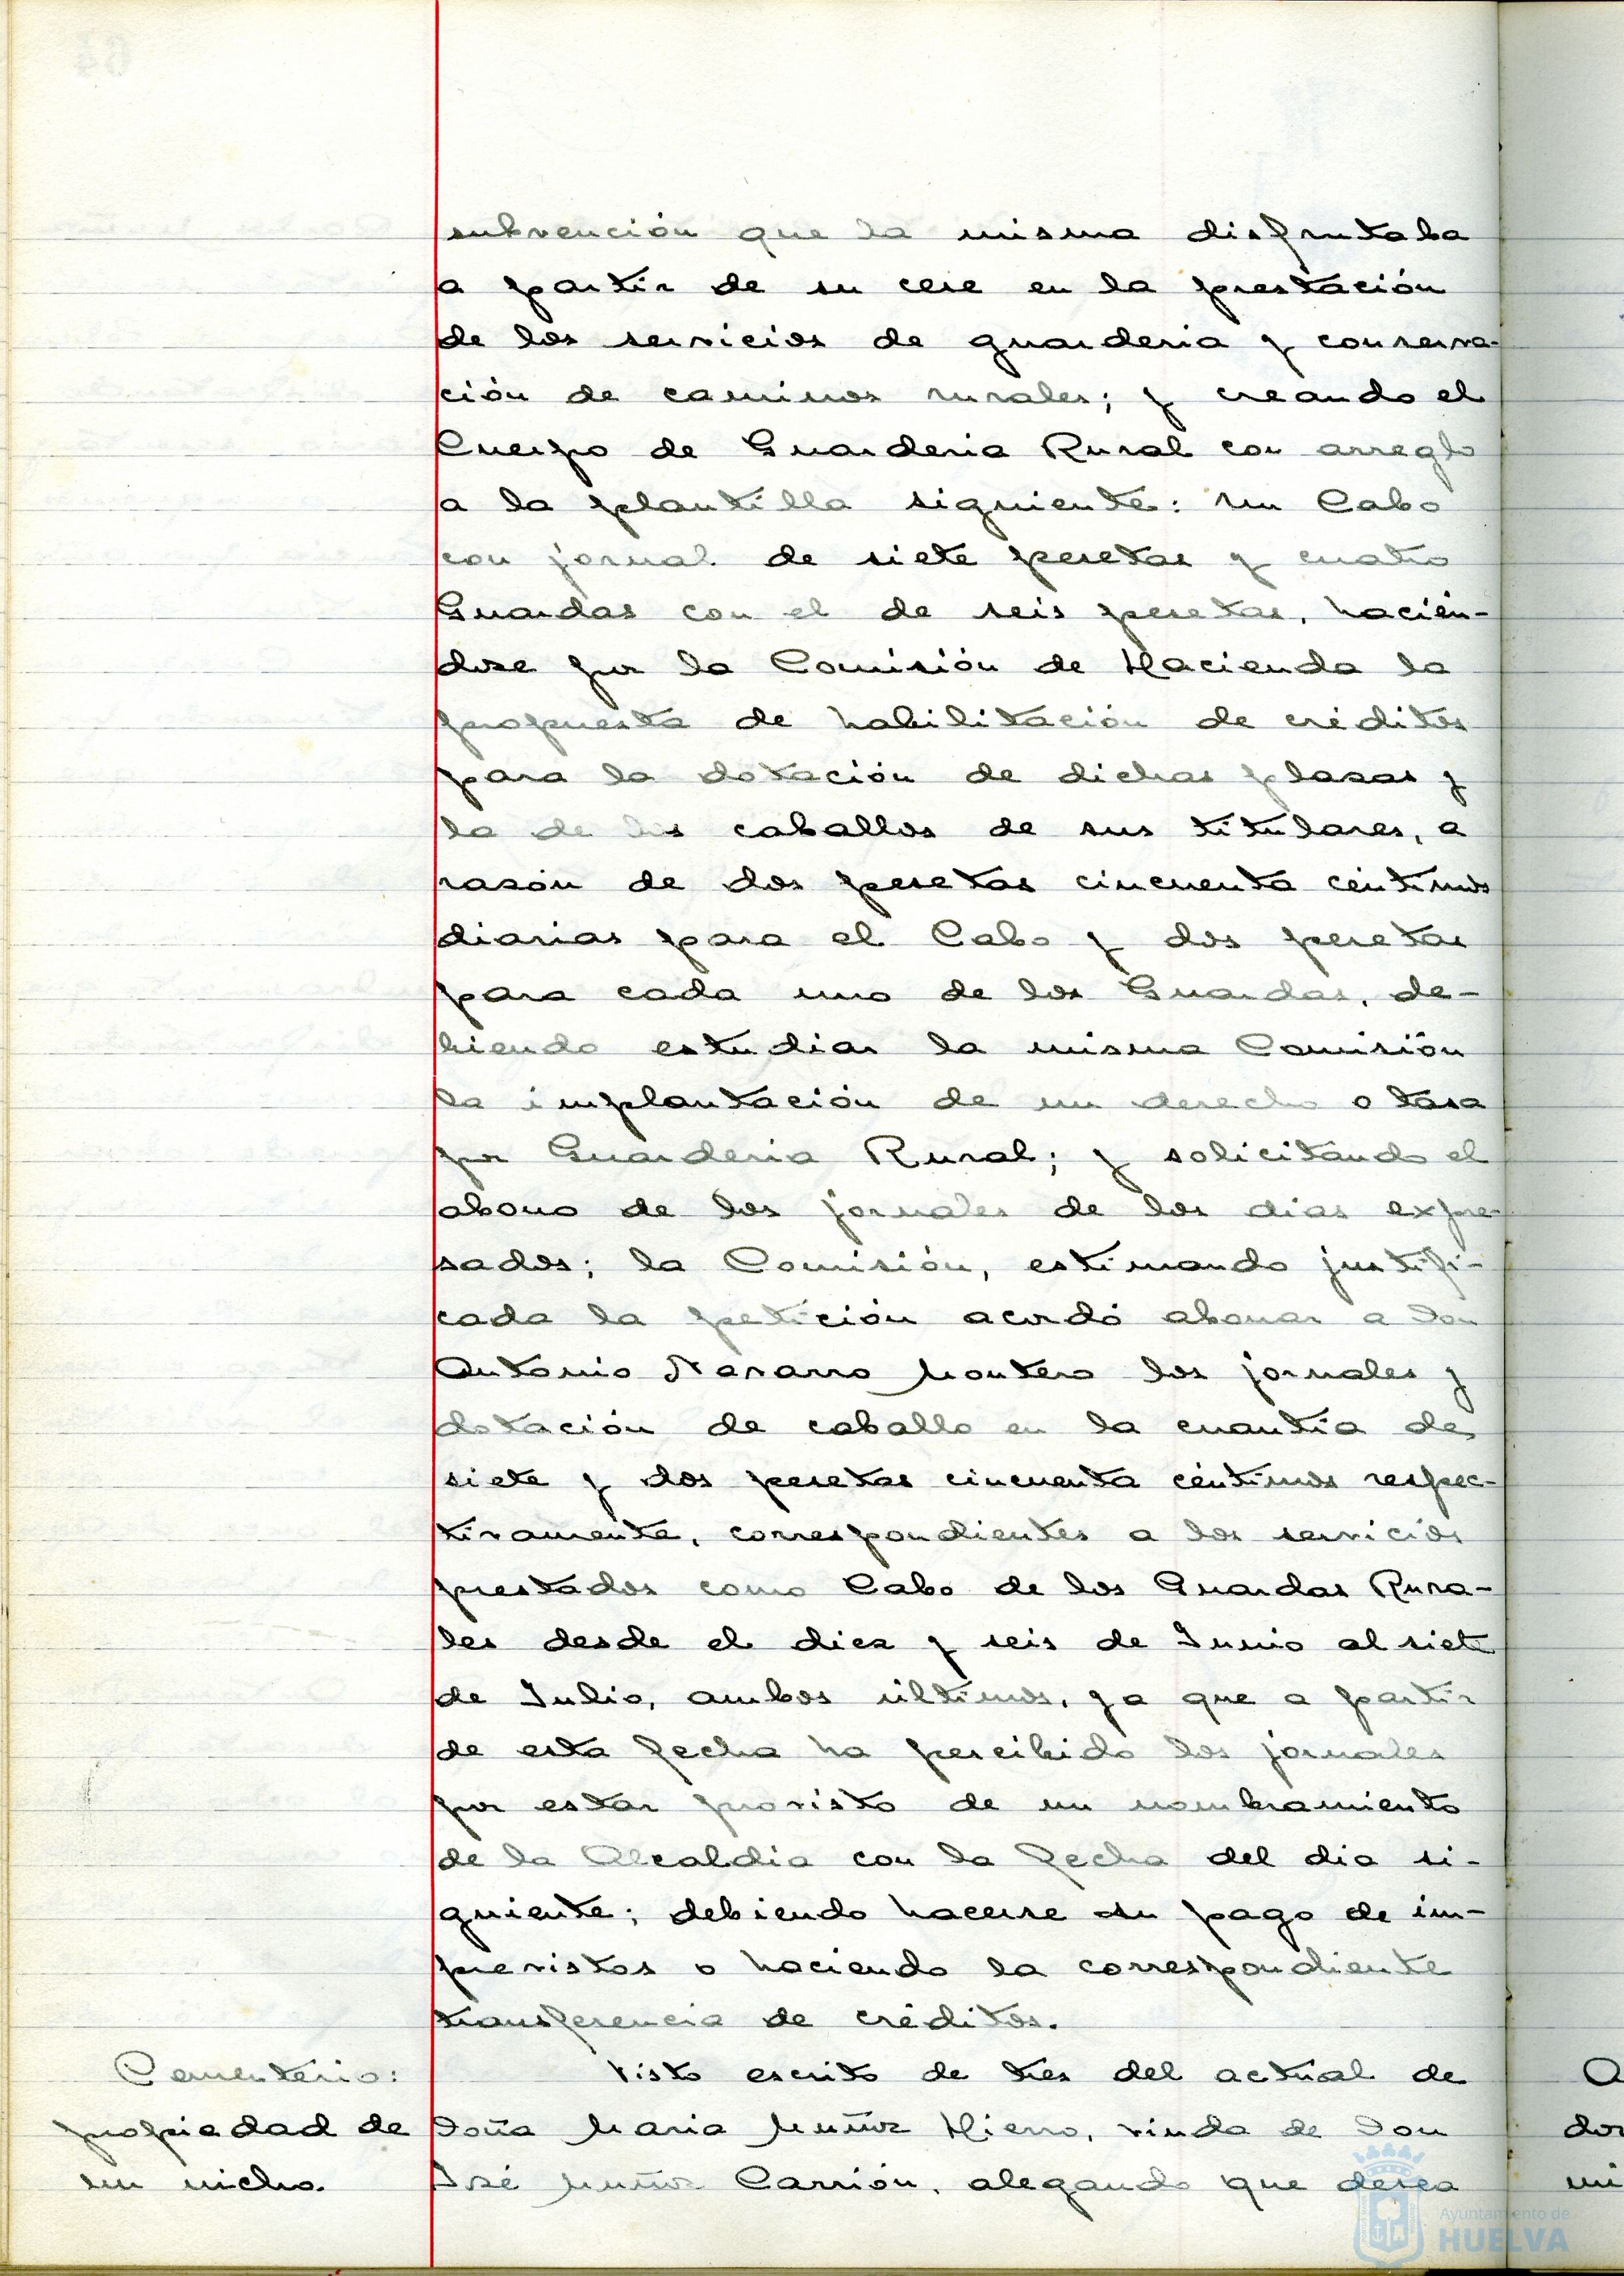 subvención que la misma disfrutaba
a partir de su cese en la prestación
de los servicios de guarderia y conserva-
ción de caminos rurales; y creando el
Cuerpo de Guarderia Rural con arreglo
a la plantilla siguiente: un Cabo
con jornal de siete pesetas y cuatro
Guardas con el de seis pesetas, hacién-
dose por la Comisión de Hacienda la
propuesta de habilitación de créditos
para la dotación de dichas plazas y
la de los caballos de sus titulares, a
razón de dos pesetas cincuenta céntimos
diarias para el Cabo y dos pesetas
para cada uno de los Guardas, de-
biendo estudiar la misma Comisión
la implantación de un derecho o tasa
por Guarderia Rural; y solicitando el
abono de los jornales de los dias expre-
sados; la Comisión, estimando justifi-
cada la petición acordó abonar a Don
Antonio Navarro Montero los jornales y
dotación de caballo en la cuantía de
siete y dos pesetas cincuenta céntimos respec-
tivamente, correspondientes a los servicios
prestados como Cabo de los Guardas Rura-
les desde el diez y seis de Junio al siete
de Julio, ambos últimos, ya que a partir
de esta fecha ha percibido los jornales
por estar provisto de un nombramiento
de la Alcaldia con la fecha del dia si-
guiente; debiendo hacerse su pago de im-
previstos o haciendo la correspondiente
transferencia de créditos.
Cementerio:
propiedad de
un nicho.
Visto escrito de tres del actual de
Doña Maria Muñoz Hierro, viuda de Don
José Muñoz Carrión, alegando que desea
A
dos
mi
Ayuntamiento de
HUELVA